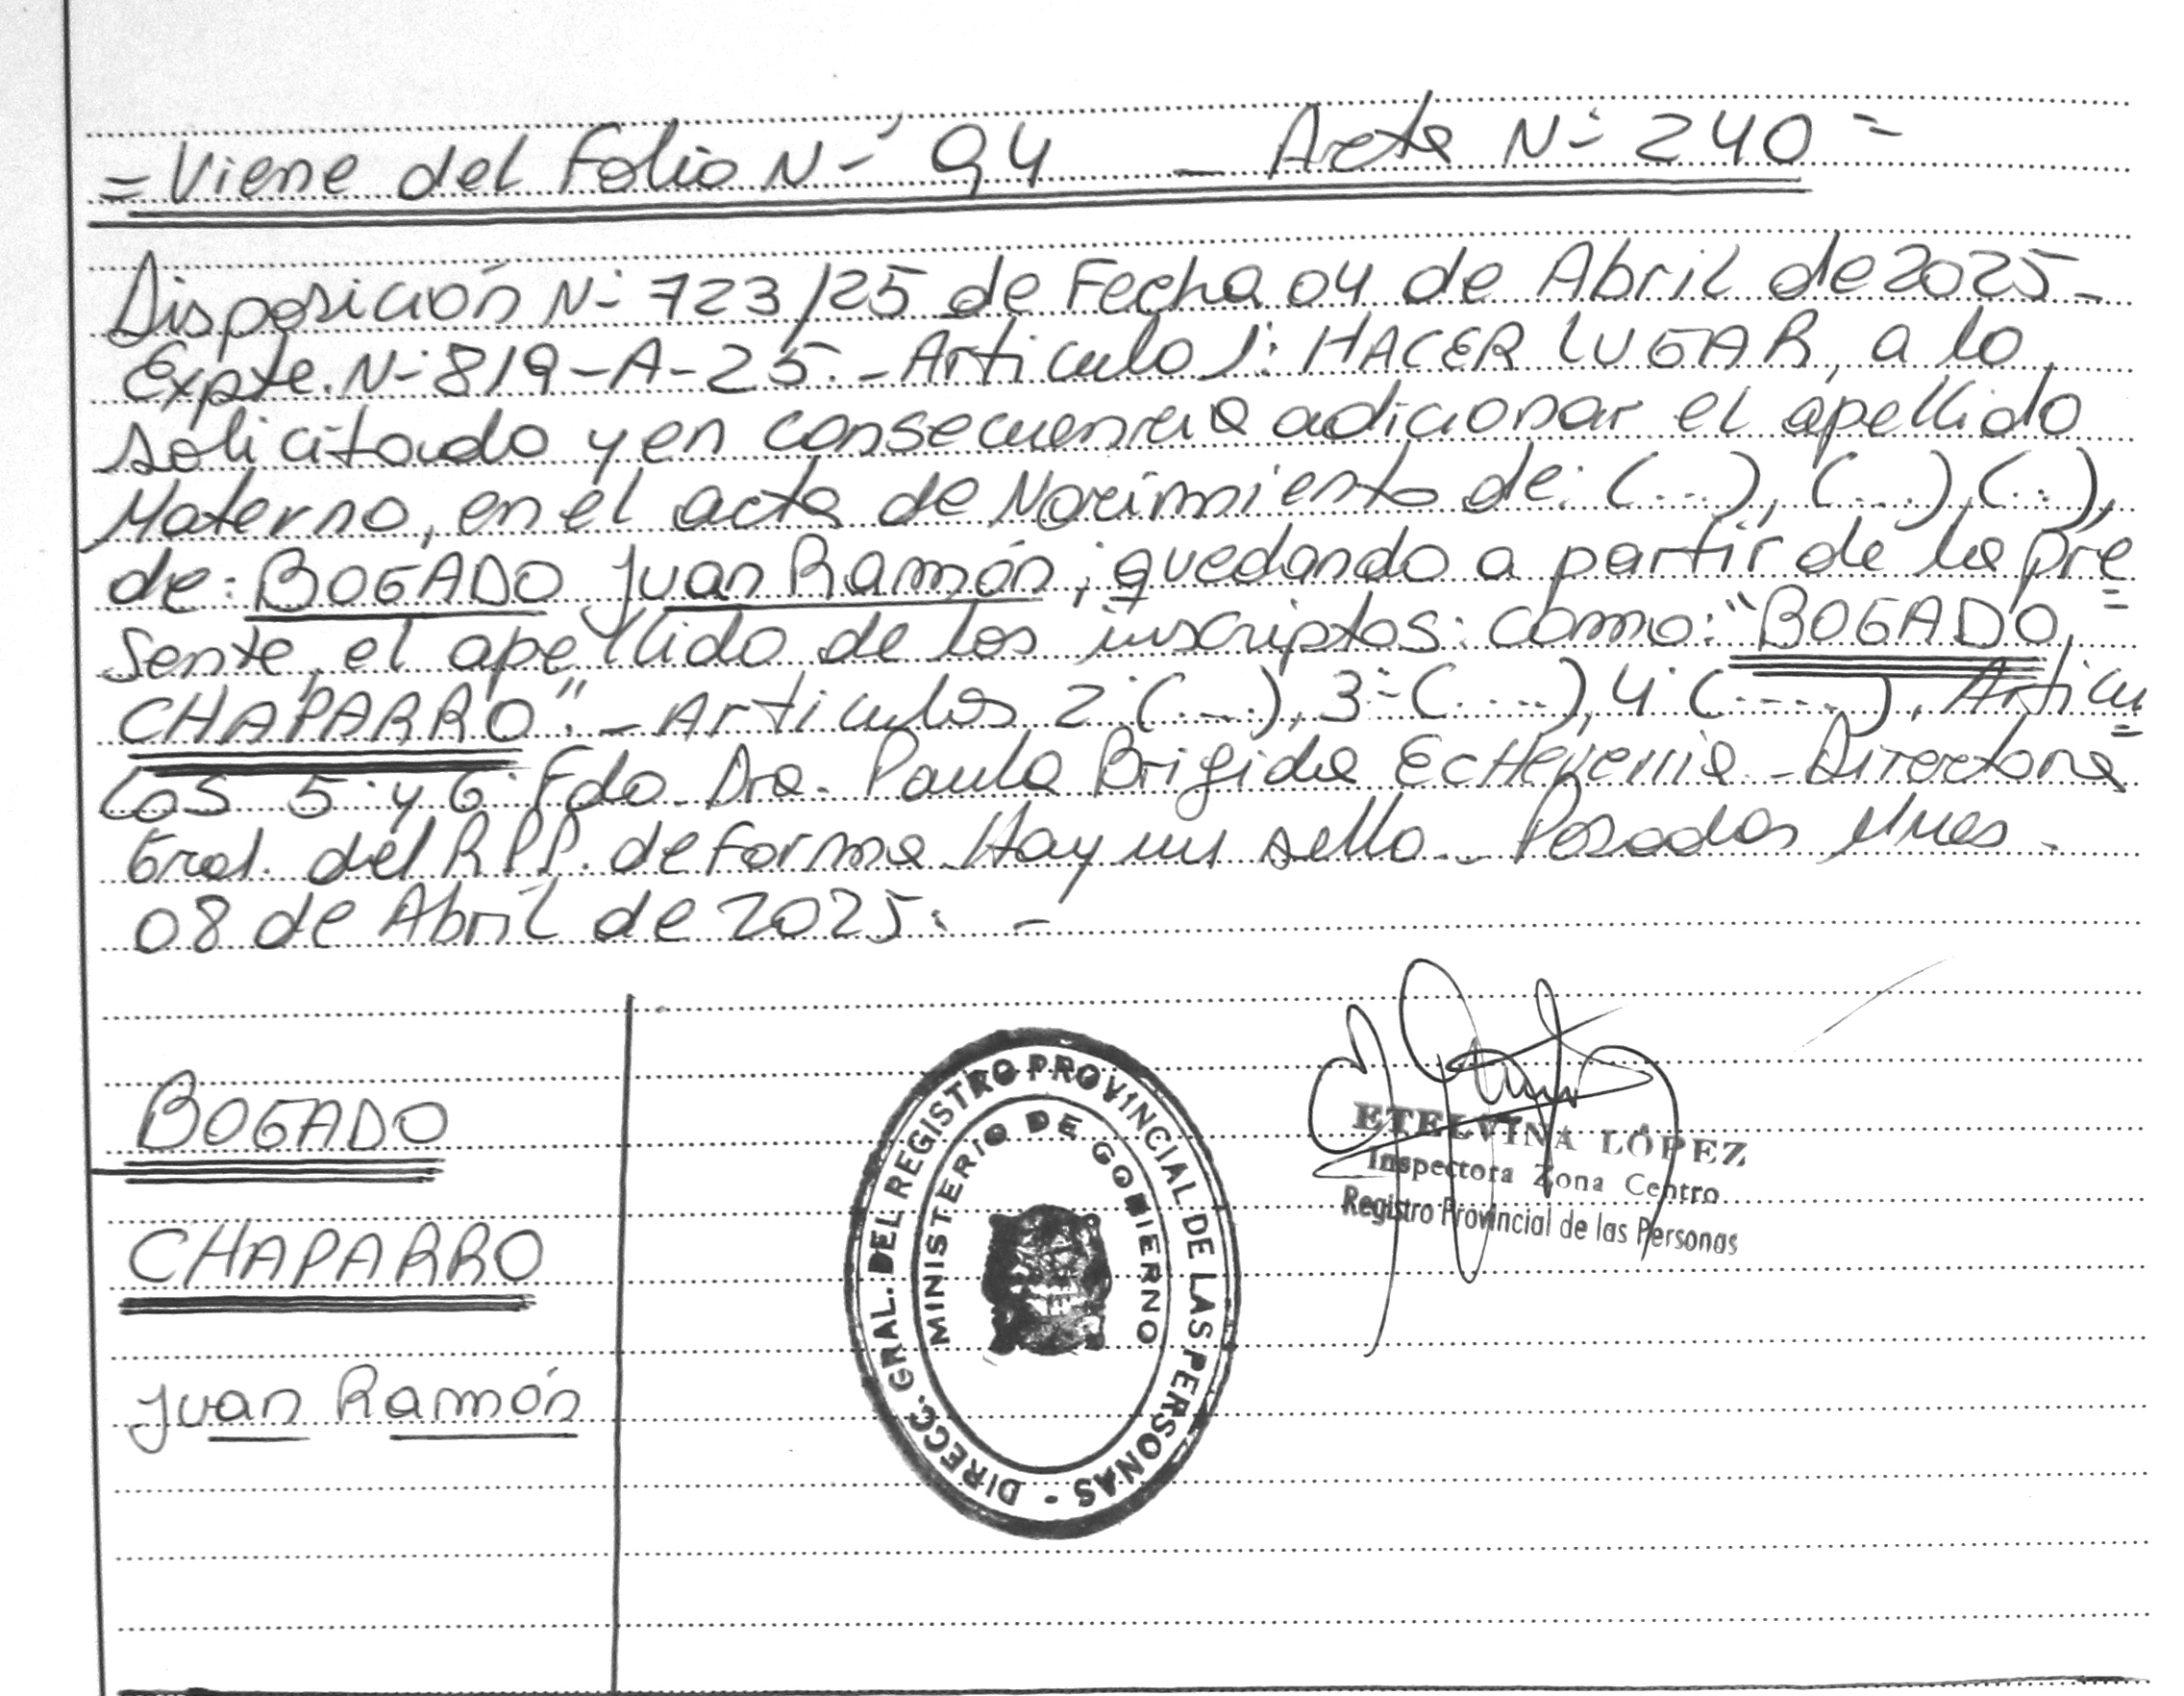 = Viene del Folio N-° 94 _ Acta N-° 240 =
Disposición N-° 723/25 de Fecha 04 de Abril de 2025_
Expte. N-° 819-A-25. _ Articulo 1: HACER LUGAR, a lo
solicitado y en consecuencia adicionar el apellido
Materno, en el acta de Nacimiento de: (...), (...), (..),
de: BOGADO Juan Ramón; quedando a partir de la pre
sente, el apellido de los inscriptos: como: "BOGADO,
CHAPARRO". _ Articulos 2° (...), 3-° (....), 4° (....), Articu
los 5° y 6° Fdo. Dra. Paula Brigida EcHeverria _ Directora
Gral. del R.P.P. de forma Hay un sello _ Posadas Mnes.
08 de Abril de 2025. -
BOGADO
CHAPARRO
Juan Ramón
DIRECC. GRAL. DEL REGISTRO PROVINCIAL DE LAS PERSONAS -
MINISTERIO DE GOBIERNO
ETELVINA LÓPEZ
Inspectora Zona Centro
Registro Provincial de las Personas